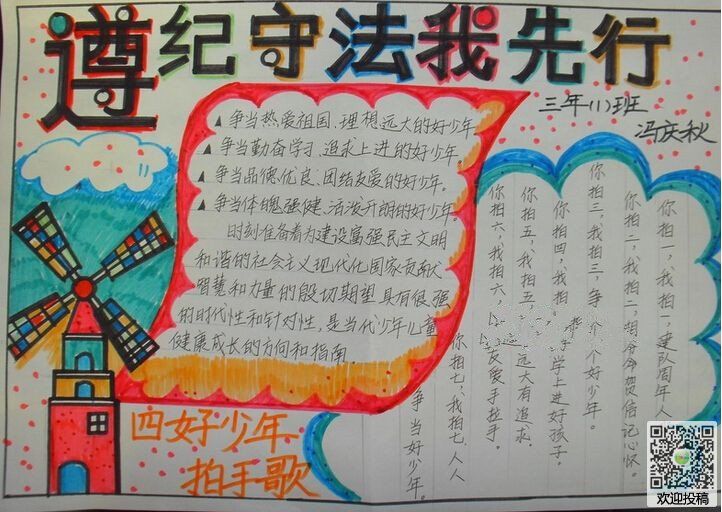 遵纪守法我先行
三年(1)班
冯庆秋
▲争当热爱祖国、理想远大的好少年。
▲争当勤奋学习、追求上进的好少年。
▲争当品德优良、团结友爱的好少年。
▲争当体魄强健、活泼开朗的好少年。
时刻准备着为建设富强民主文明
和谐的社会主义现代化国家贡献
智慧和力量的殷切期望具有很强
的时代性和针对性,是当代少年儿童
健康成长的方向和指南。
四好少年
拍手歌
你拍一,我拍一,建队周年人
你拍二,我拍二,胡爷爷贺信记心怀。
你拍三,我拍三,争个个好少年。
你拍四,我拍学上进好孩子。
你拍五,我拍五远大有追求。
你拍六,我拍六,友爱手拉手。
你拍七,我拍七,人人
争当好少年。
欢迎投稿